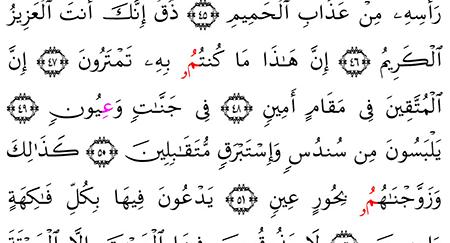 رَأْسِهِۦ مِنْ عَذَابِ الْحَمِيمِ ۝٤٥ ذُقْ إِنَّكَ أَنتَ الْعَزِيزُ
الْكَرِيمُ ۝٤٦ إِنَّ هَٰذَا مَا كُنتُمُۥ بِهِۦ تَمْتَرُونَ ۝٤٧ إِنَّ
الْمُتَّقِينَ فِى مَقَامٍ أَمِينٍ ۝٤٨ فِى جَنَّٰتٍ وَعِيُونٍ ۝٤٩
يَلْبَسُونَ مِن سُندُسٍ وَإِسْتَبْرَقٍ مُّتَقَٰبِلِينَ ۝٥٠ كَذَٰلِكَ
وَزَوَّجْنَٰهُمُۥ بِحُورٍ عِينٍ ۝٥١ يَدْعُونَ فِيهَا بِكُلِّ فَٰكِهَةٍ